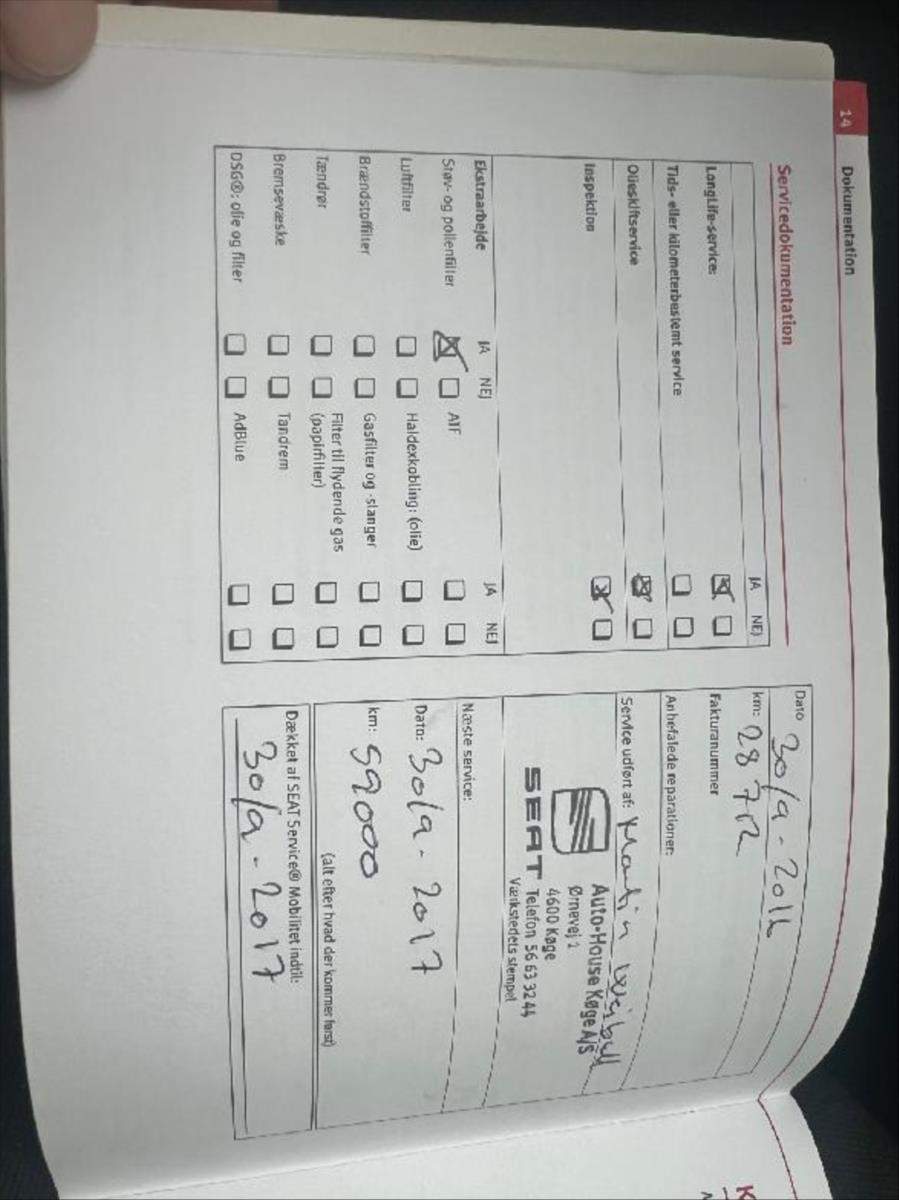 14
Dokumentation
Servicedokumentation
JA NEJ
LongLife-service:
Tids- eller kilometerbestemt service
Olieskiftservice
Inspektion
Ekstraarbejde JA NEJ JA NEJ
Støv- og pollenfilter ATF
Luftfilter Haldexkobling: (olie)
Brændstoffilter Gasfilter og -slanger
Tændrør Filter til flydende gas
(papirfilter)
Bremsevæske Tandrem
DSG®: olie og filter AdBlue
Dato 30/9-
km: 28
Fakturanummer
Anbefalede reparationer:
Service udført af: Martin
Auto•House Køge A/S
Ørnevej 2
4600 Køge
SEAT Telefon 56 63 32 44
Værkstedets stempel
Næste service:
Dato: 30/9 - 2017
km: 59000
(alt efter hvad der kommer først)
Dækket af SEAT Service® Mobilitet indtil:
30/9 - 2017
K